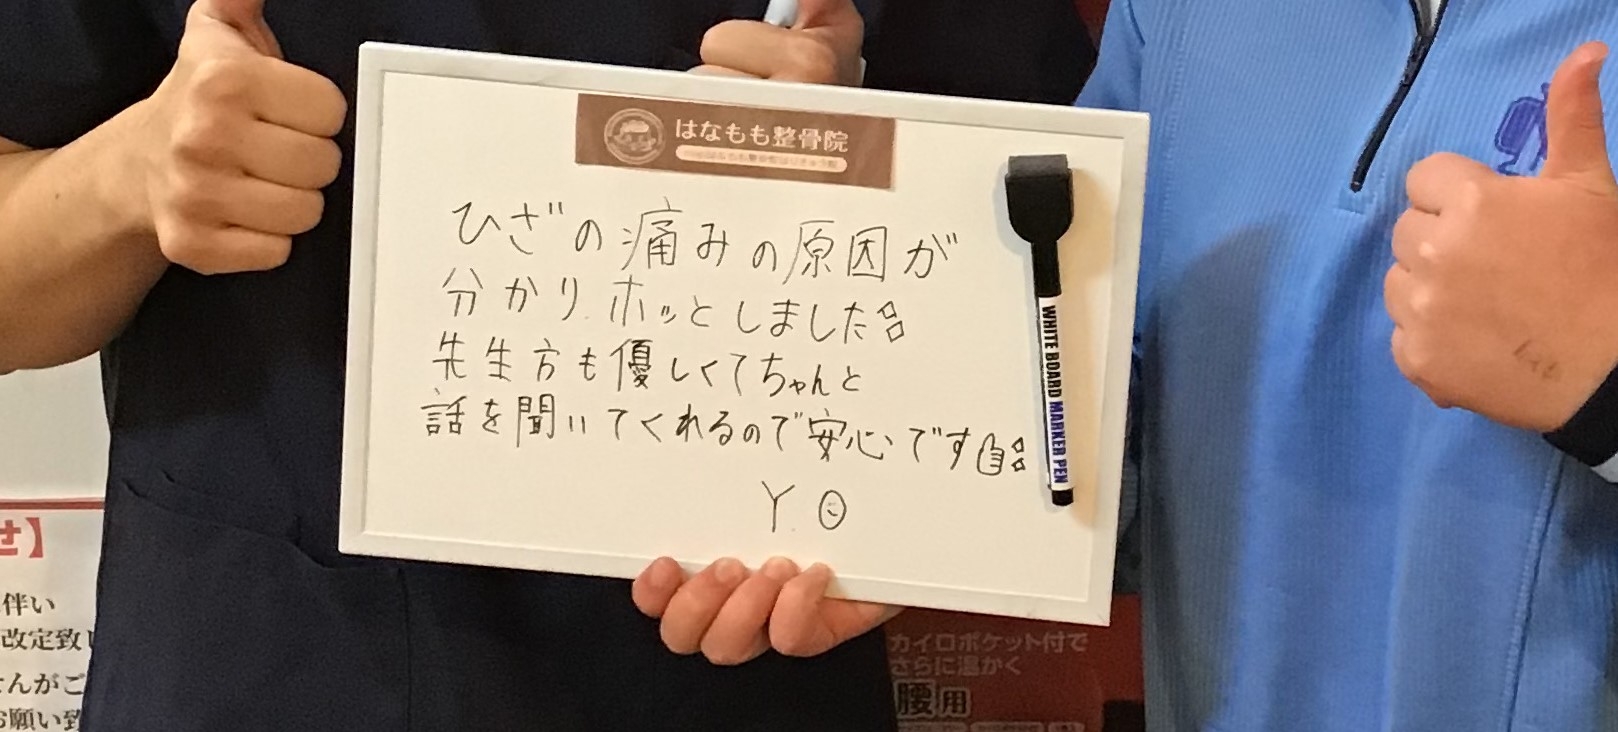 はなもも整骨院
ひざの痛みの原因が
分かり.ホッとしました
先生方も優しくてちゃんと
話を聞いてくれるので安心です
Y.
WHITE BOARD MARKER PEN
せ】
伴い
改定致し
さんがご
お願い致
カイロポケット付で
さらに温かく
腰用